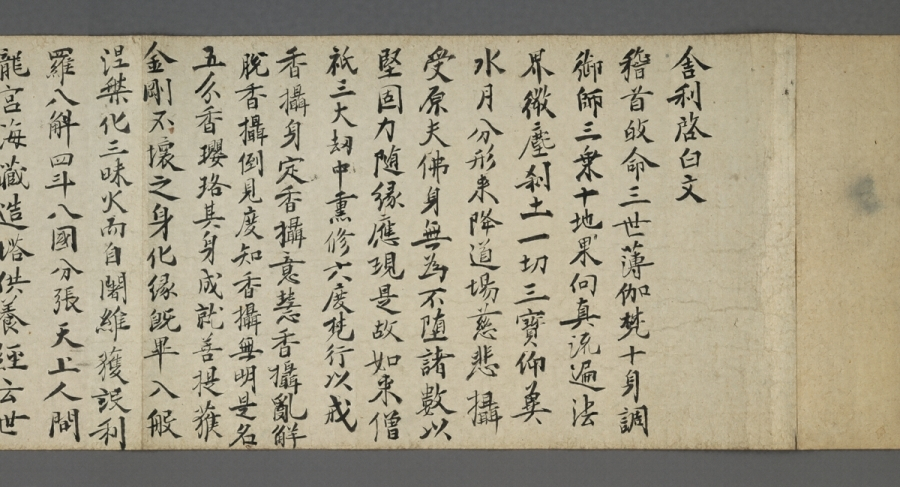 舎利啓白文
稽首歸命三世薄伽梵十身調
御師三乗十地果向真流遍法
界微塵刹土一切三寶仰冀
水月分形来降道場慈悲攝
受原夫佛身無為不堕諸數以
堅固力随縁應現是故如来僧
祇三大劫中熏修六度梵行以戒
香攝身定香攝意慧香攝亂解
脱香攝倒見度知香攝無明是名
五分香瓔珞其身成就善提獲
金剛不壞之身化縁既畢入般
涅槃化三昧火而自闍維獲設利
羅八斛四斗八國分張天上人間
龍宮海蔵造塔供養経云世